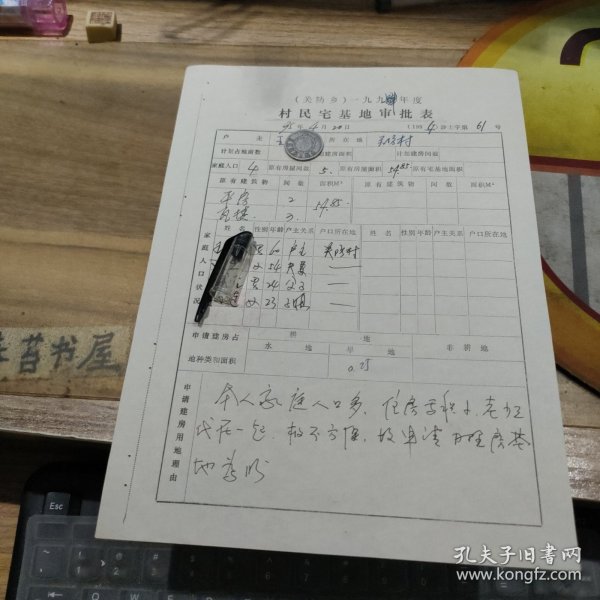 (关防乡)一九九四年度
村民宅基地审批表
年4月20日 (199 4)汾土字第61号
户主 所在地
计划占地亩数 建房面积 计划建房间数
家庭人口 4 原有房屋间数 5. 原有房屋面积 54.85 原有宅基地面积
原有建筑物 间数 面积M² 原有建筑物 间数 面积M²
平房 2 54.85
瓦楼 3
家庭人口状况
姓名 性别 年龄 户主关系 户口所在地 姓名 性别 年龄 户主关系 户口所在地
男 60 户主
女 54 夫妻 —
男 24 父子 —
女 23 子媳 —
申请建房占地种类和面积
耕地
水地 旱地 非耕地
申请建房用地理由
本人家庭人口多,住房面积小,老少三
代居一起,极不方便,故申请
地为盼
苔书屋
Esc
孔夫子旧书网
www.kongfz.com